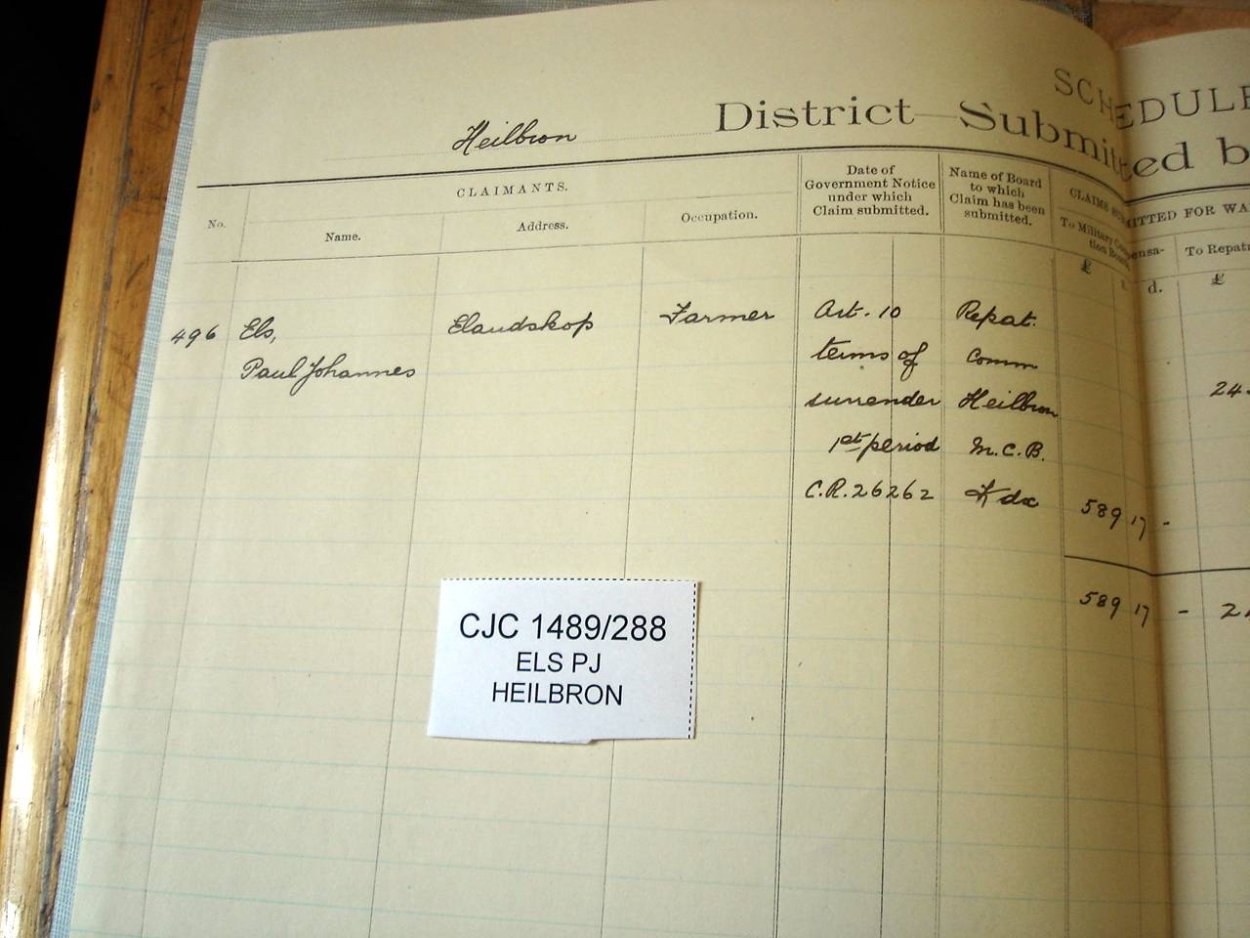 SCHEDULE
Heilbron District Submitted b
No.
CLAIMANTS.
Name.
Address.
Occupation.
Date of
Government Notice
under which
Claim submitted.
Name of Board
to which
Claim has been
submitted.
CLAIMS SUBMITTED FOR WA
To Military Compensa-
tion Board.
To Repatr
£
d.
£
496 Els, Elandskop Farmer Art. 10 Repat.
Paul Johannes terms of Comm
surrender Heilbron 24
1st period M.C.B.
C.R. 26262 589 17 -
589 17 - 2
CJC 1489/288
ELS PJ
HEILBRON